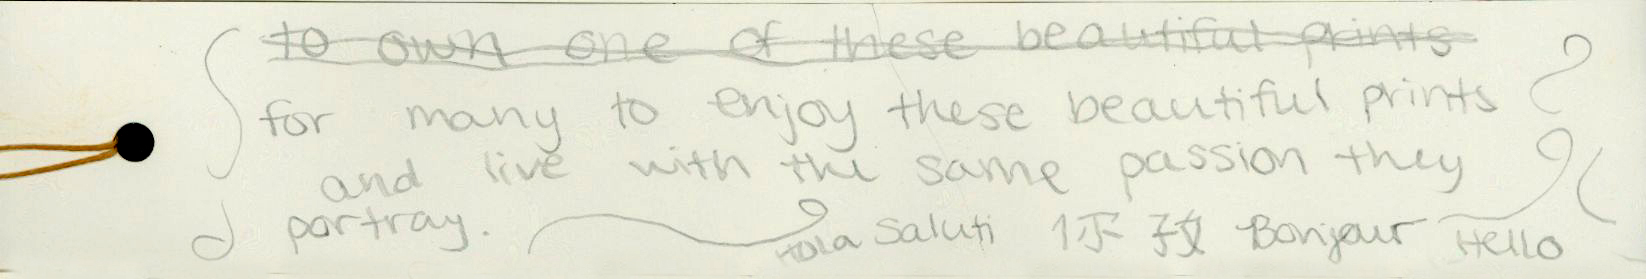 to own one of these beautiful prints
for many to enjoy these beautiful prints
and live with the same passion they
portray.
Hola Saluti 你 好 Bonjour Hello